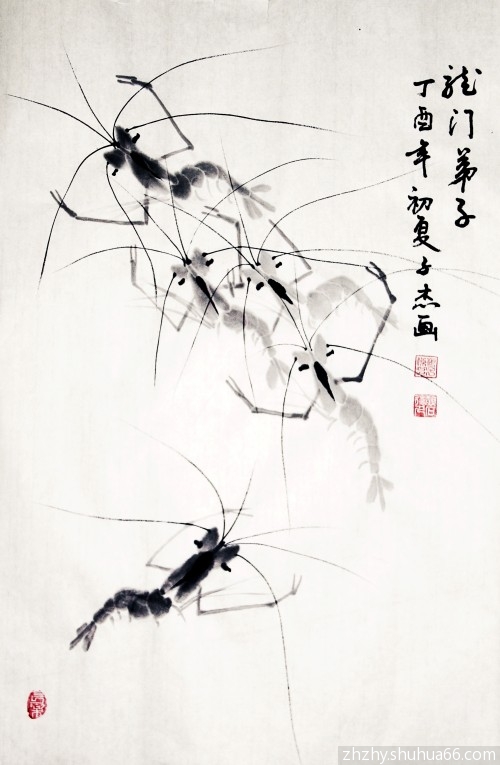 龍门弟子
丁酉年初夏子杰画
zhzhy.shuhua66.com